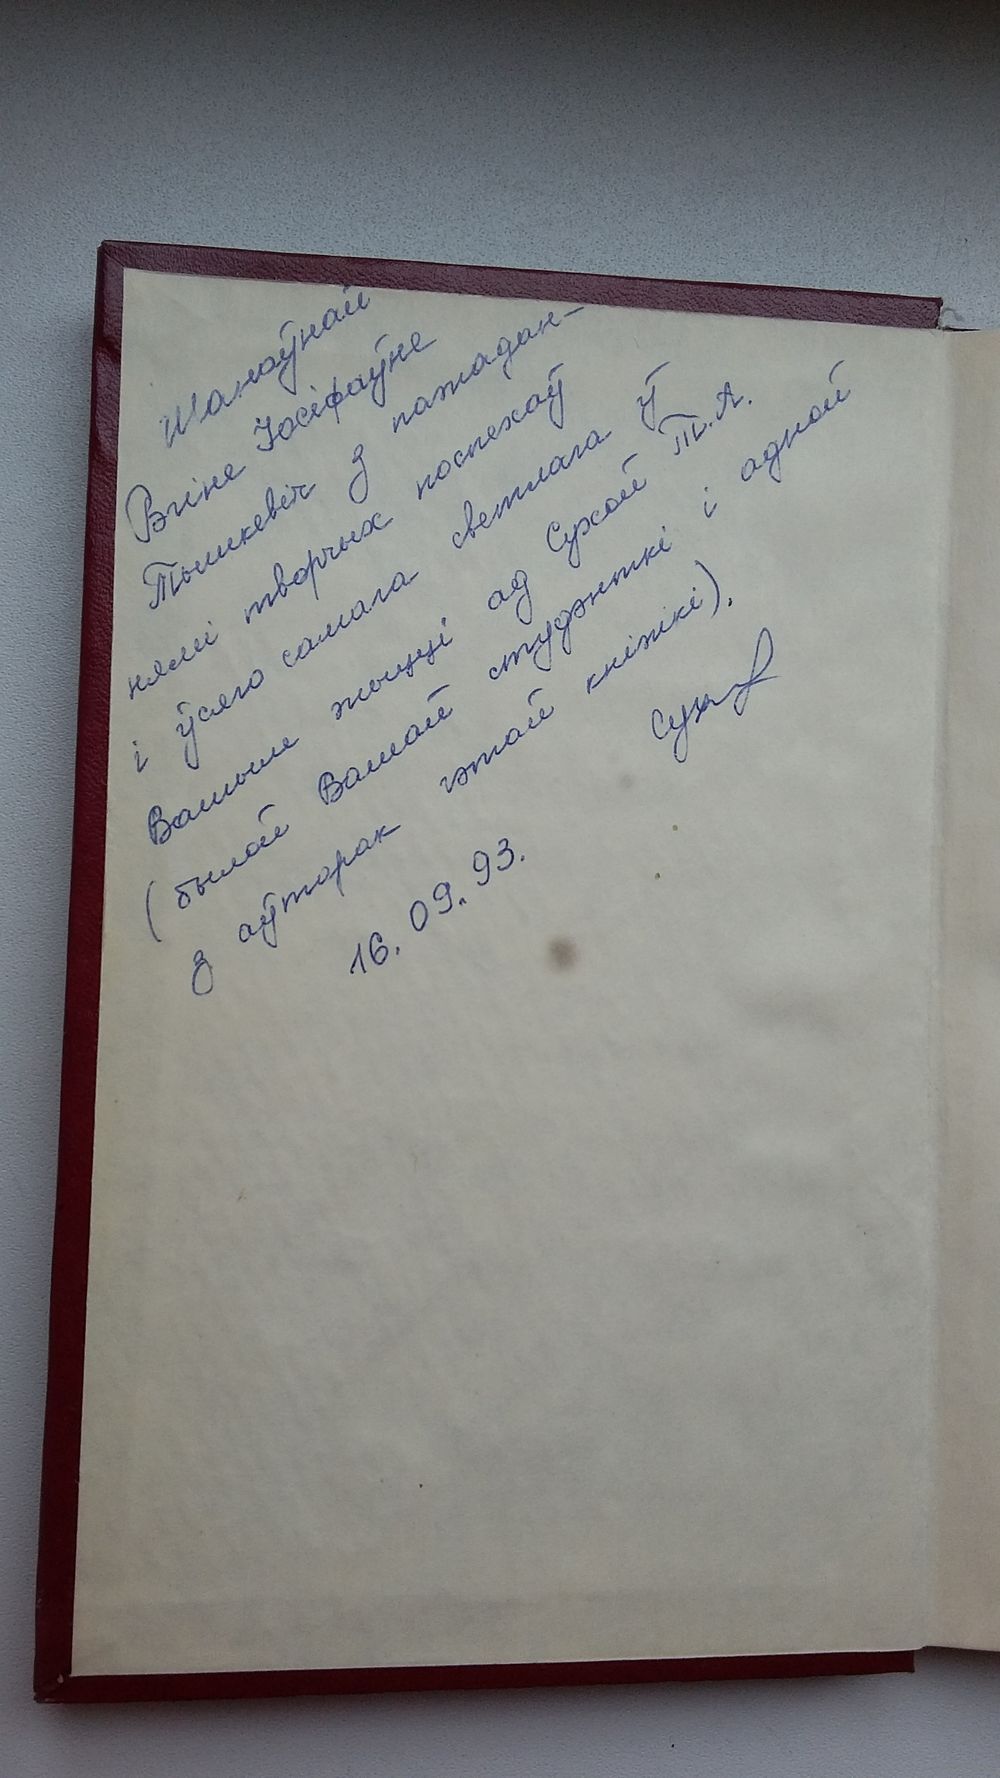 Шаноўнай
Яніне Іосіфаўне
Тышкевіч з пажадан-
нямі творчых поспехаў
і ўсяго самага светлага ў
Вашым жыцці ад Сухой Т.А.
(былой Вашай студэнткі і адной
з аўтарак гэтай кніжкі).
Сухая
16.09.93.